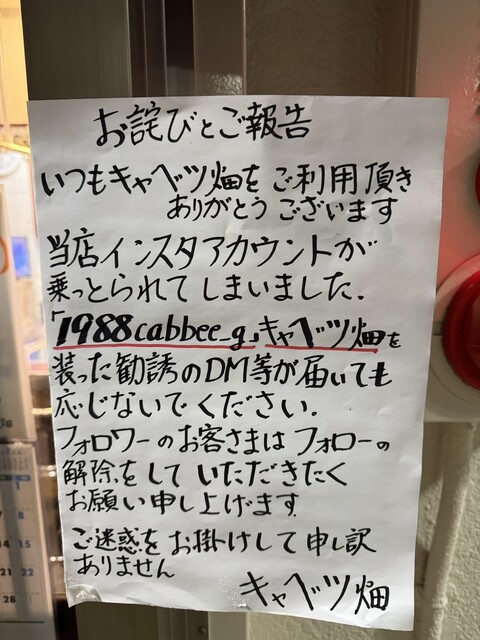 お詫びとご報告
いつもキャベツ畑をご利用頂き
ありがとうございます
当店インスタアカウントが
乗っとられてしまいました.
「1988cabbee_g」キャベツ畑を
装った勧誘のDM等が届いても
応じないでください.
フォロワーのお客さまはフォローの
解除をしていただきたく
お願い申し上げます
ご迷惑をお掛けして申し訳
ありません
キャベツ畑
1
7
8
14
15
21
22
28